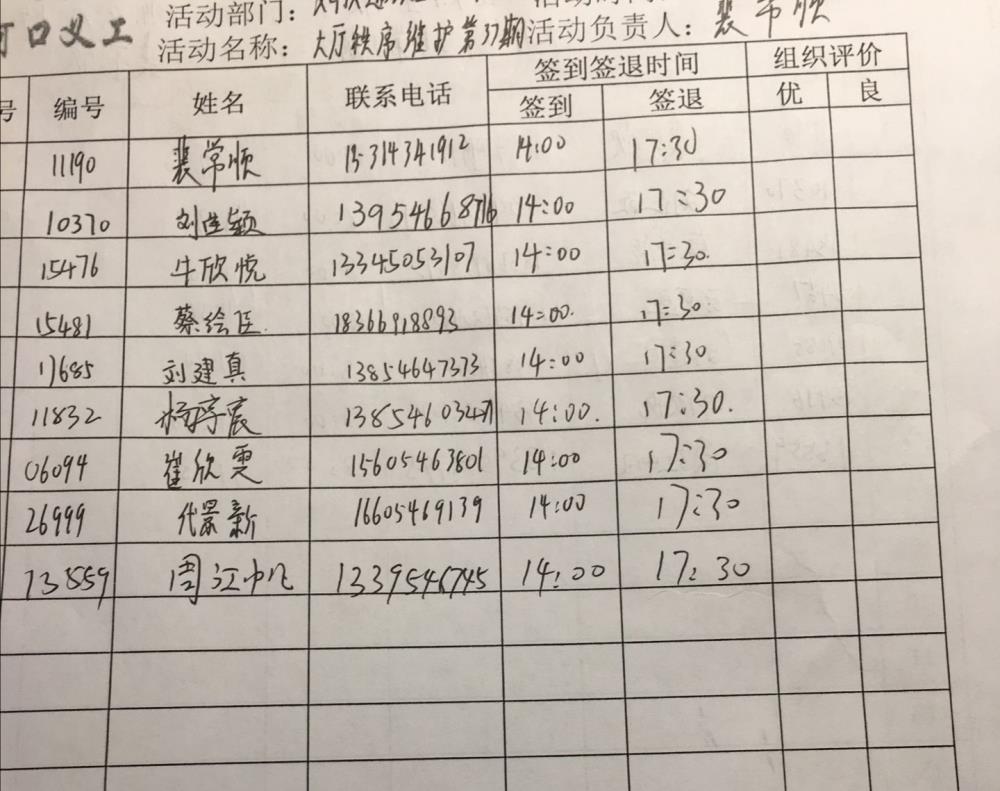 河口义工
活动部门：
活动名称：大厅秩序维护第37期 活动负责人：裴常顺
号 编号 姓名 联系电话 签到签退时间 组织评价
签到 签退 优 良
11190 裴常顺 15314341912 14:00 17:30
10370 刘世颖 13954668716 14:00 17:30
15476 牛欣悦 13345053107 14:00 17:30
15481 蔡绘臣 18366918893 14:00 17:30
17685 刘建真 13854647373 14:00 17:30
11832 杨宇宸 13854603471 14:00 17:30
06094 崔欣雯 15605463801 14:00 17:30
26999 代景新 16605469139 14:00 17:30
13559 周江帆 1339546745 14:00 17:30